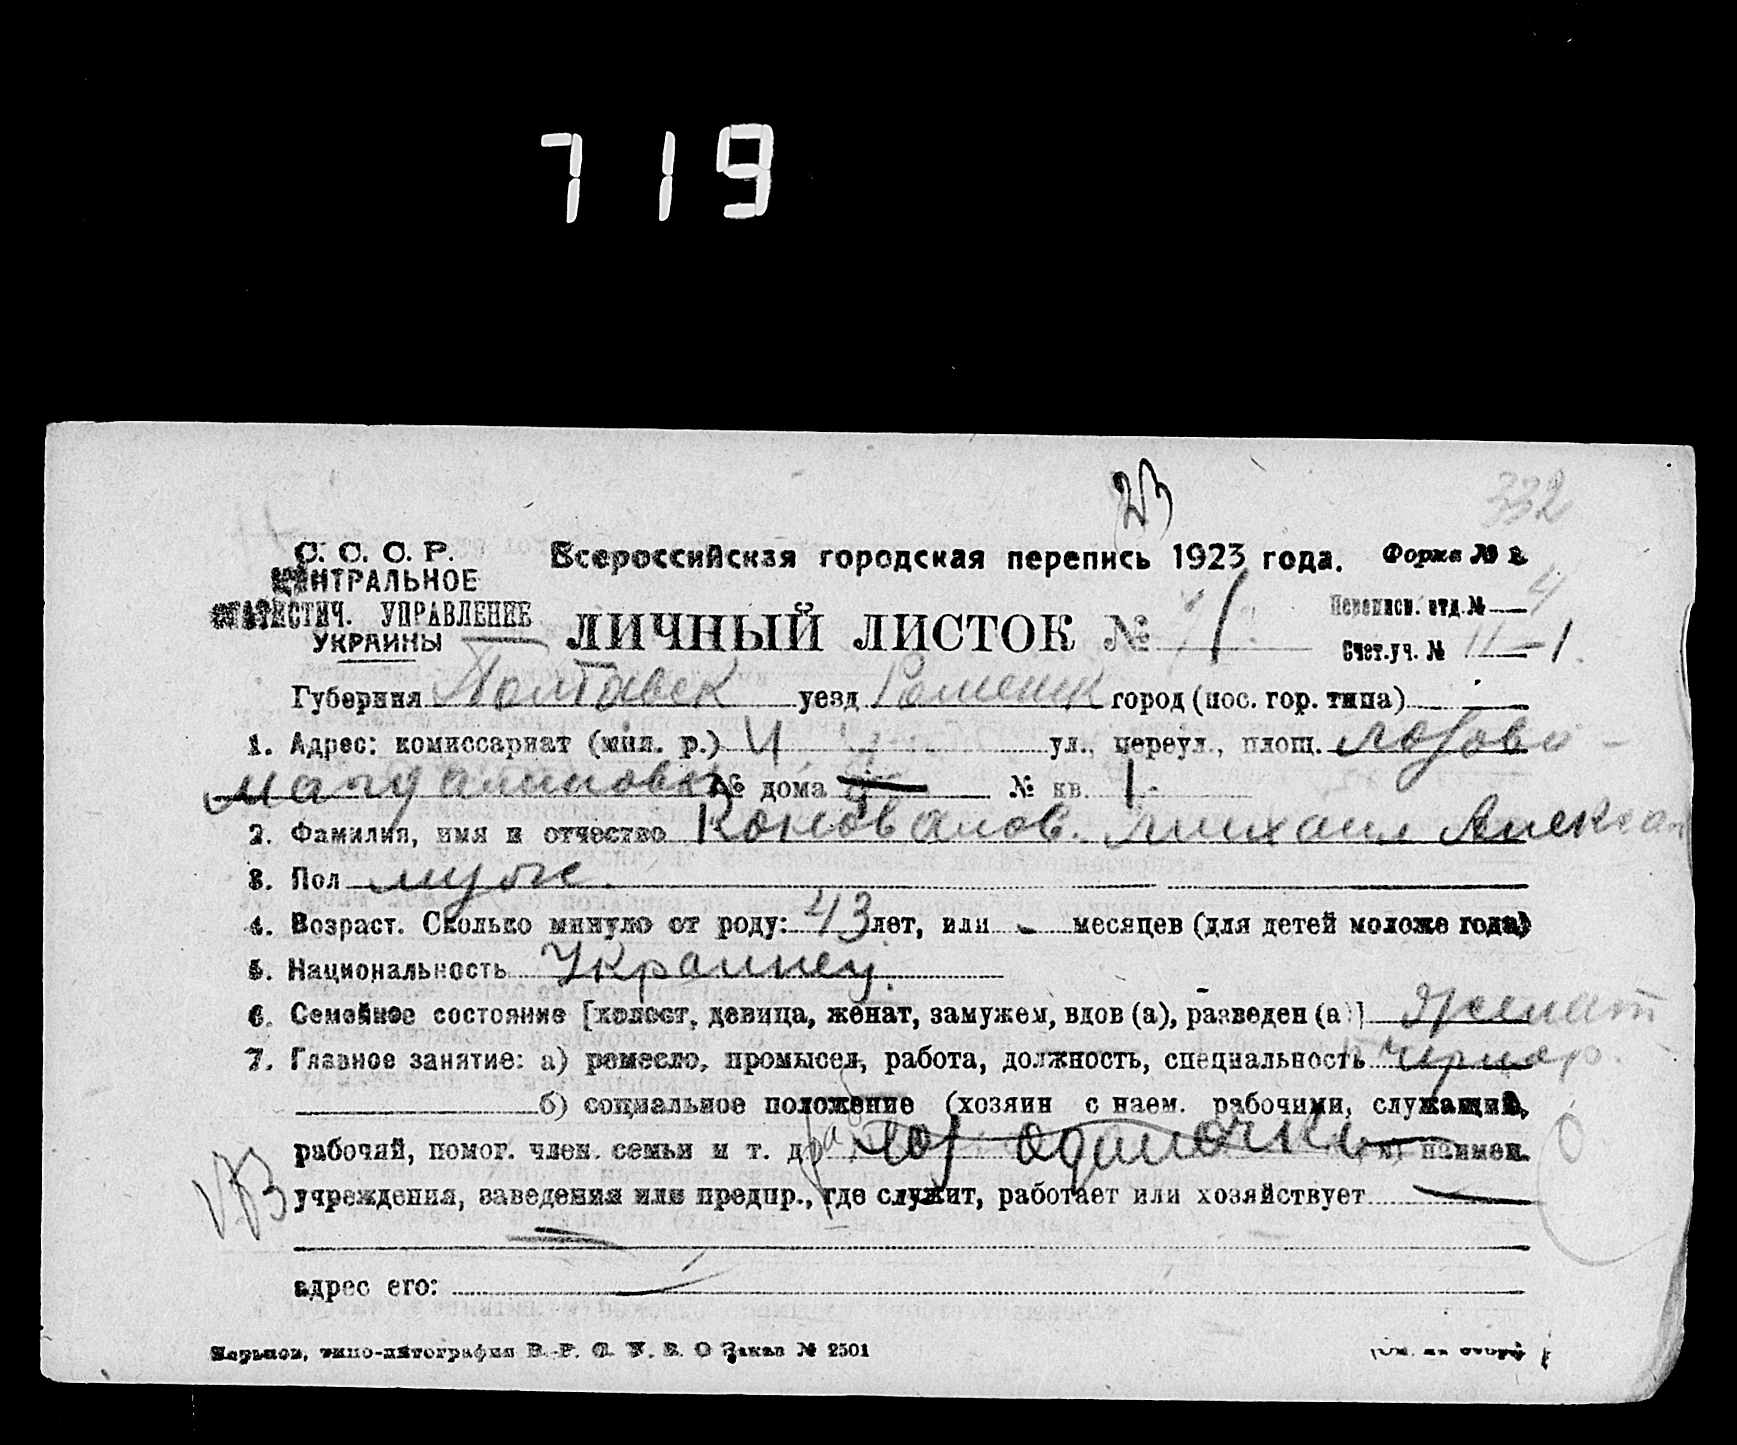 719
23
332
С. С. С. Р.
ЦЕНТРАЛЬНОЕ
СТАТИСТИЧ. УПРАВЛЕНИЕ
УКРАИНЫ
Всероссийская городская перепись 1923 года. Форма № 2
ЛИЧНЫЙ ЛИСТОК № 1
Переписн. отд. № 4
Счет. уч. № 11-1.
Губерния Полтавск уезд Роменск город (пос. гор. типа)
1. Адрес: комиссариат (мил. р.) ул., переул., площ. Лозово-
№ дома № кв. 1.
2. Фамилия, имя и отчество Коновалов. Михаил Алексан
3. Пол мужс.
4. Возраст. Сколько минуло от роду: 43 лет, или - месяцев (для детей моложе года)
5. Национальность Украинец.
6. Семейное состояние [холост, девица, женат, замужем, вдов (а), разведен (а)] Женат
7. Главное занятие: а) ремесло, промысел, работа, должность, специальность Чернор.
б) социальное положение (хозяин с наем. рабочими, служащий,
рабочий, помог. член. семьи и т. д. хоз. одиночка в) наимен.
учреждения, заведения или предпр., где служит, работает или хозяйствует
адрес его:
Харьков, типо-литография Заказ № 2501
(См. на оборот